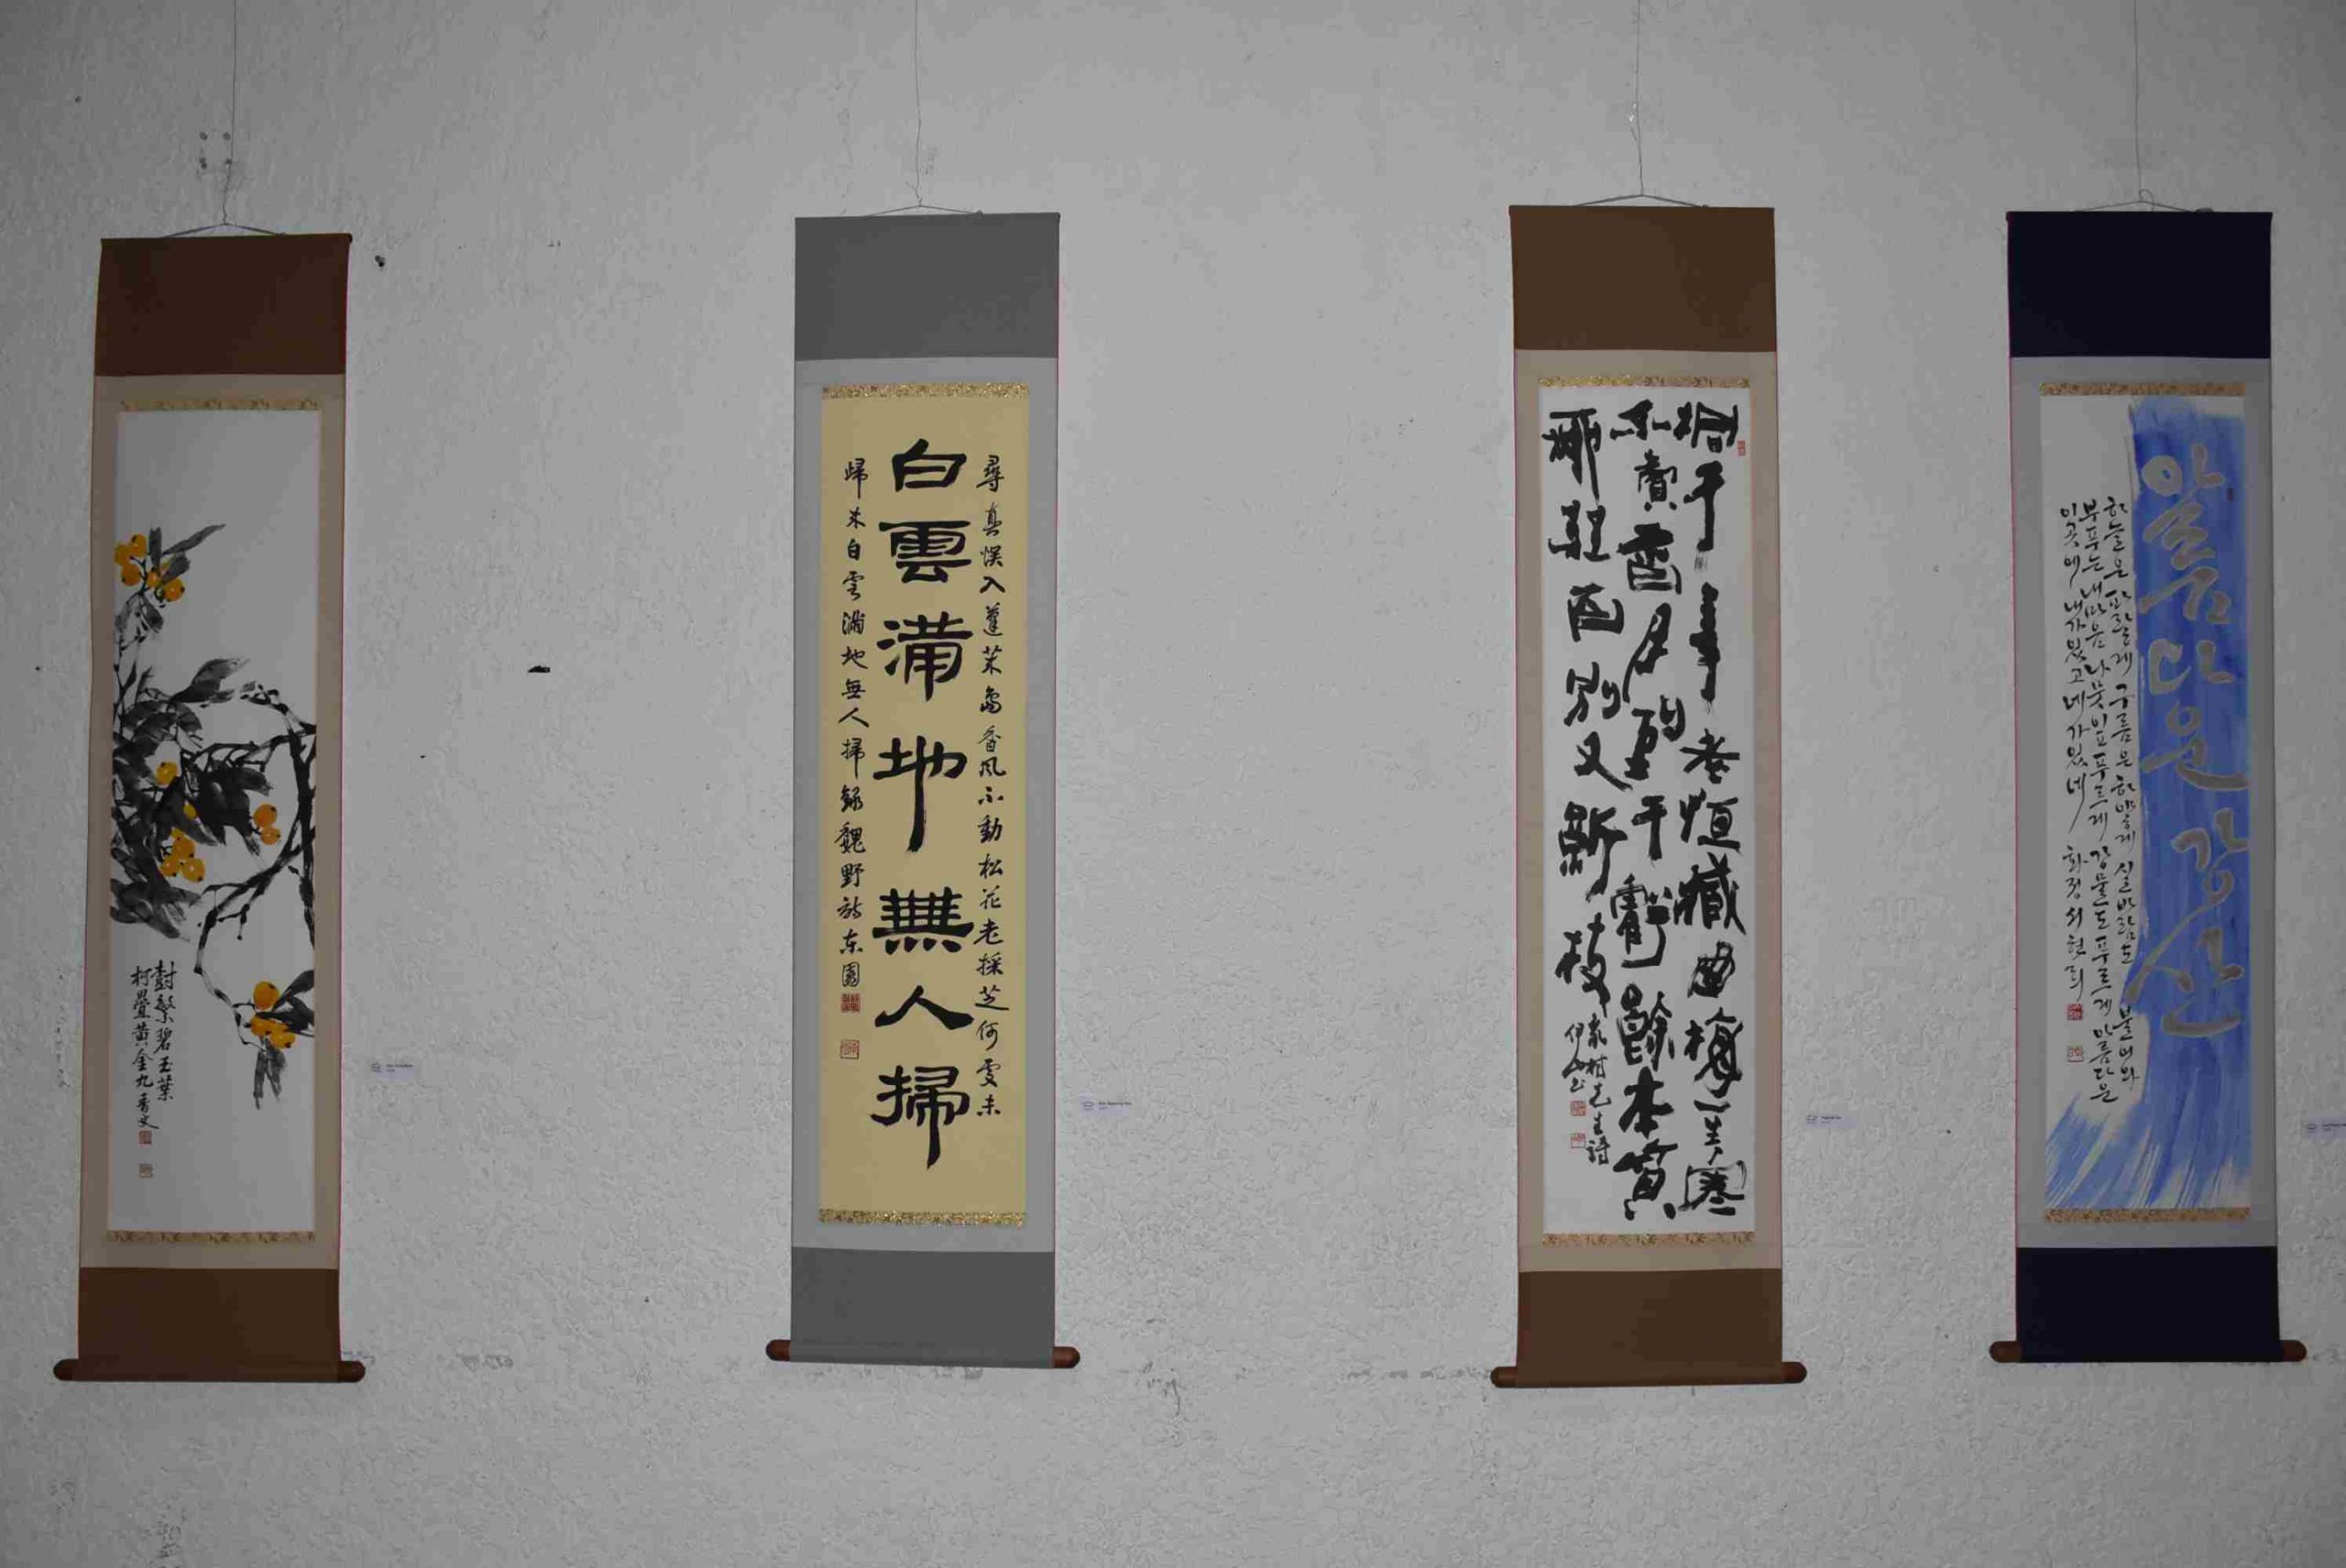 樹繁碧玉葉
柯疊黄金丸
尋真悞入蓬萊島香風不動松花老採芝何處未
白雲滿地無人掃
歸来白雲滿地無人掃 錄魏野詩 东園
桐千年老恒藏曲梅一生寒
不賣香月到千虧餘本質
柳經百別又新枝
象村先生詩
아름다운 강산
하늘은 파랗게 구름은 하얗게 실바람도 불어와
부푸는 내마음 나뭇잎 푸르게 강물도 푸르게 아름다운
이곳에 내가 있고 네가 있네 화정 서현희